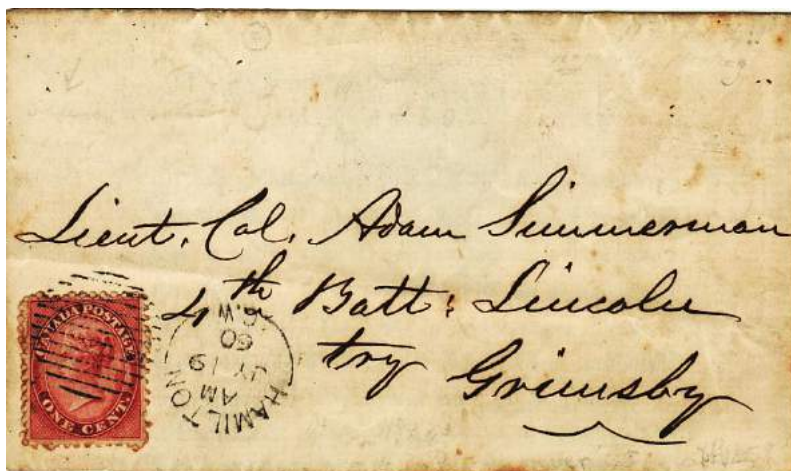 Lieut. Col. Adam Simmerman
4th Batt: Lincoln
try Grimsby
CANADA POSTAGE
ONE CENT
HAMILTON
AM
JY 19
60
C.W.